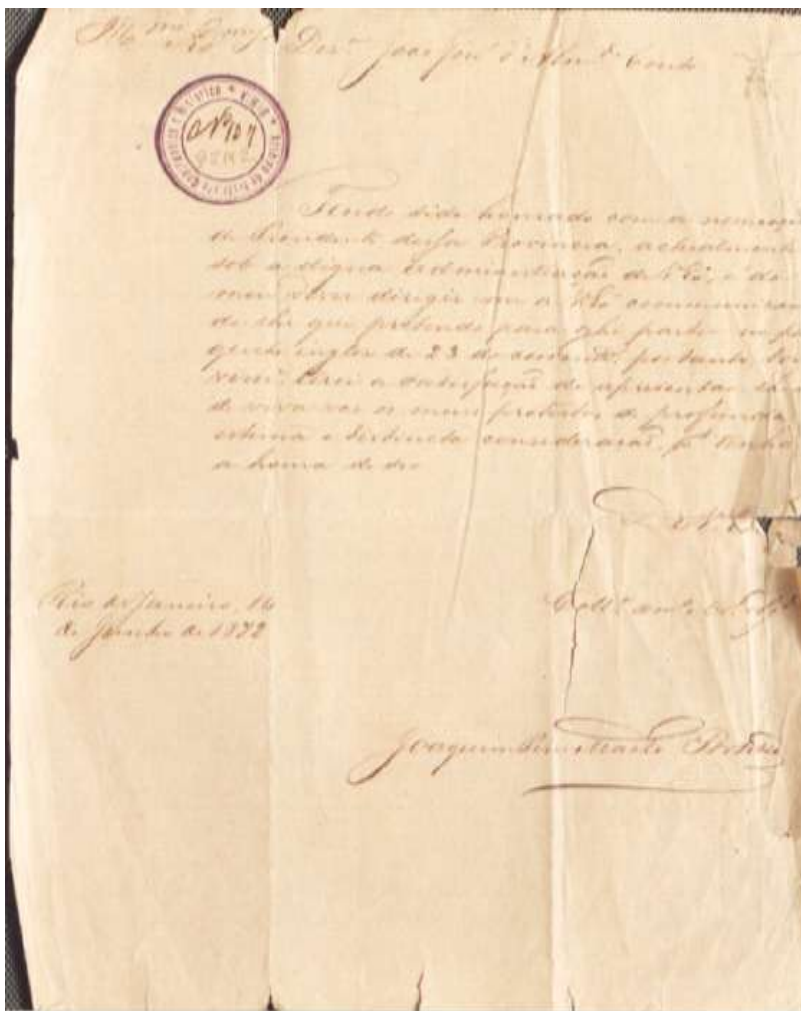 Ill.mo Exm.o Snr. Dez.or João José d'Alm.da Couto
Nº 107
Tendo sido honrado com a nomeação
de Presidente dessa Provincia, actualmente
sob a digna administração de V Exª, é do
meu dever dirigir me a V Exª communican
do lhe que pretendo para ahi partir no pa
quete inglez de 23 do corrente, portanto
terei a satisfação de apresentar
de viva voz os meus protestos de profunda
estima e distincta consideração, pr. tenho
a honra de ser
De V. Exª
Rio de Janeiro, 16
de Junho de 1872
Joaquim Pires Machado Portella